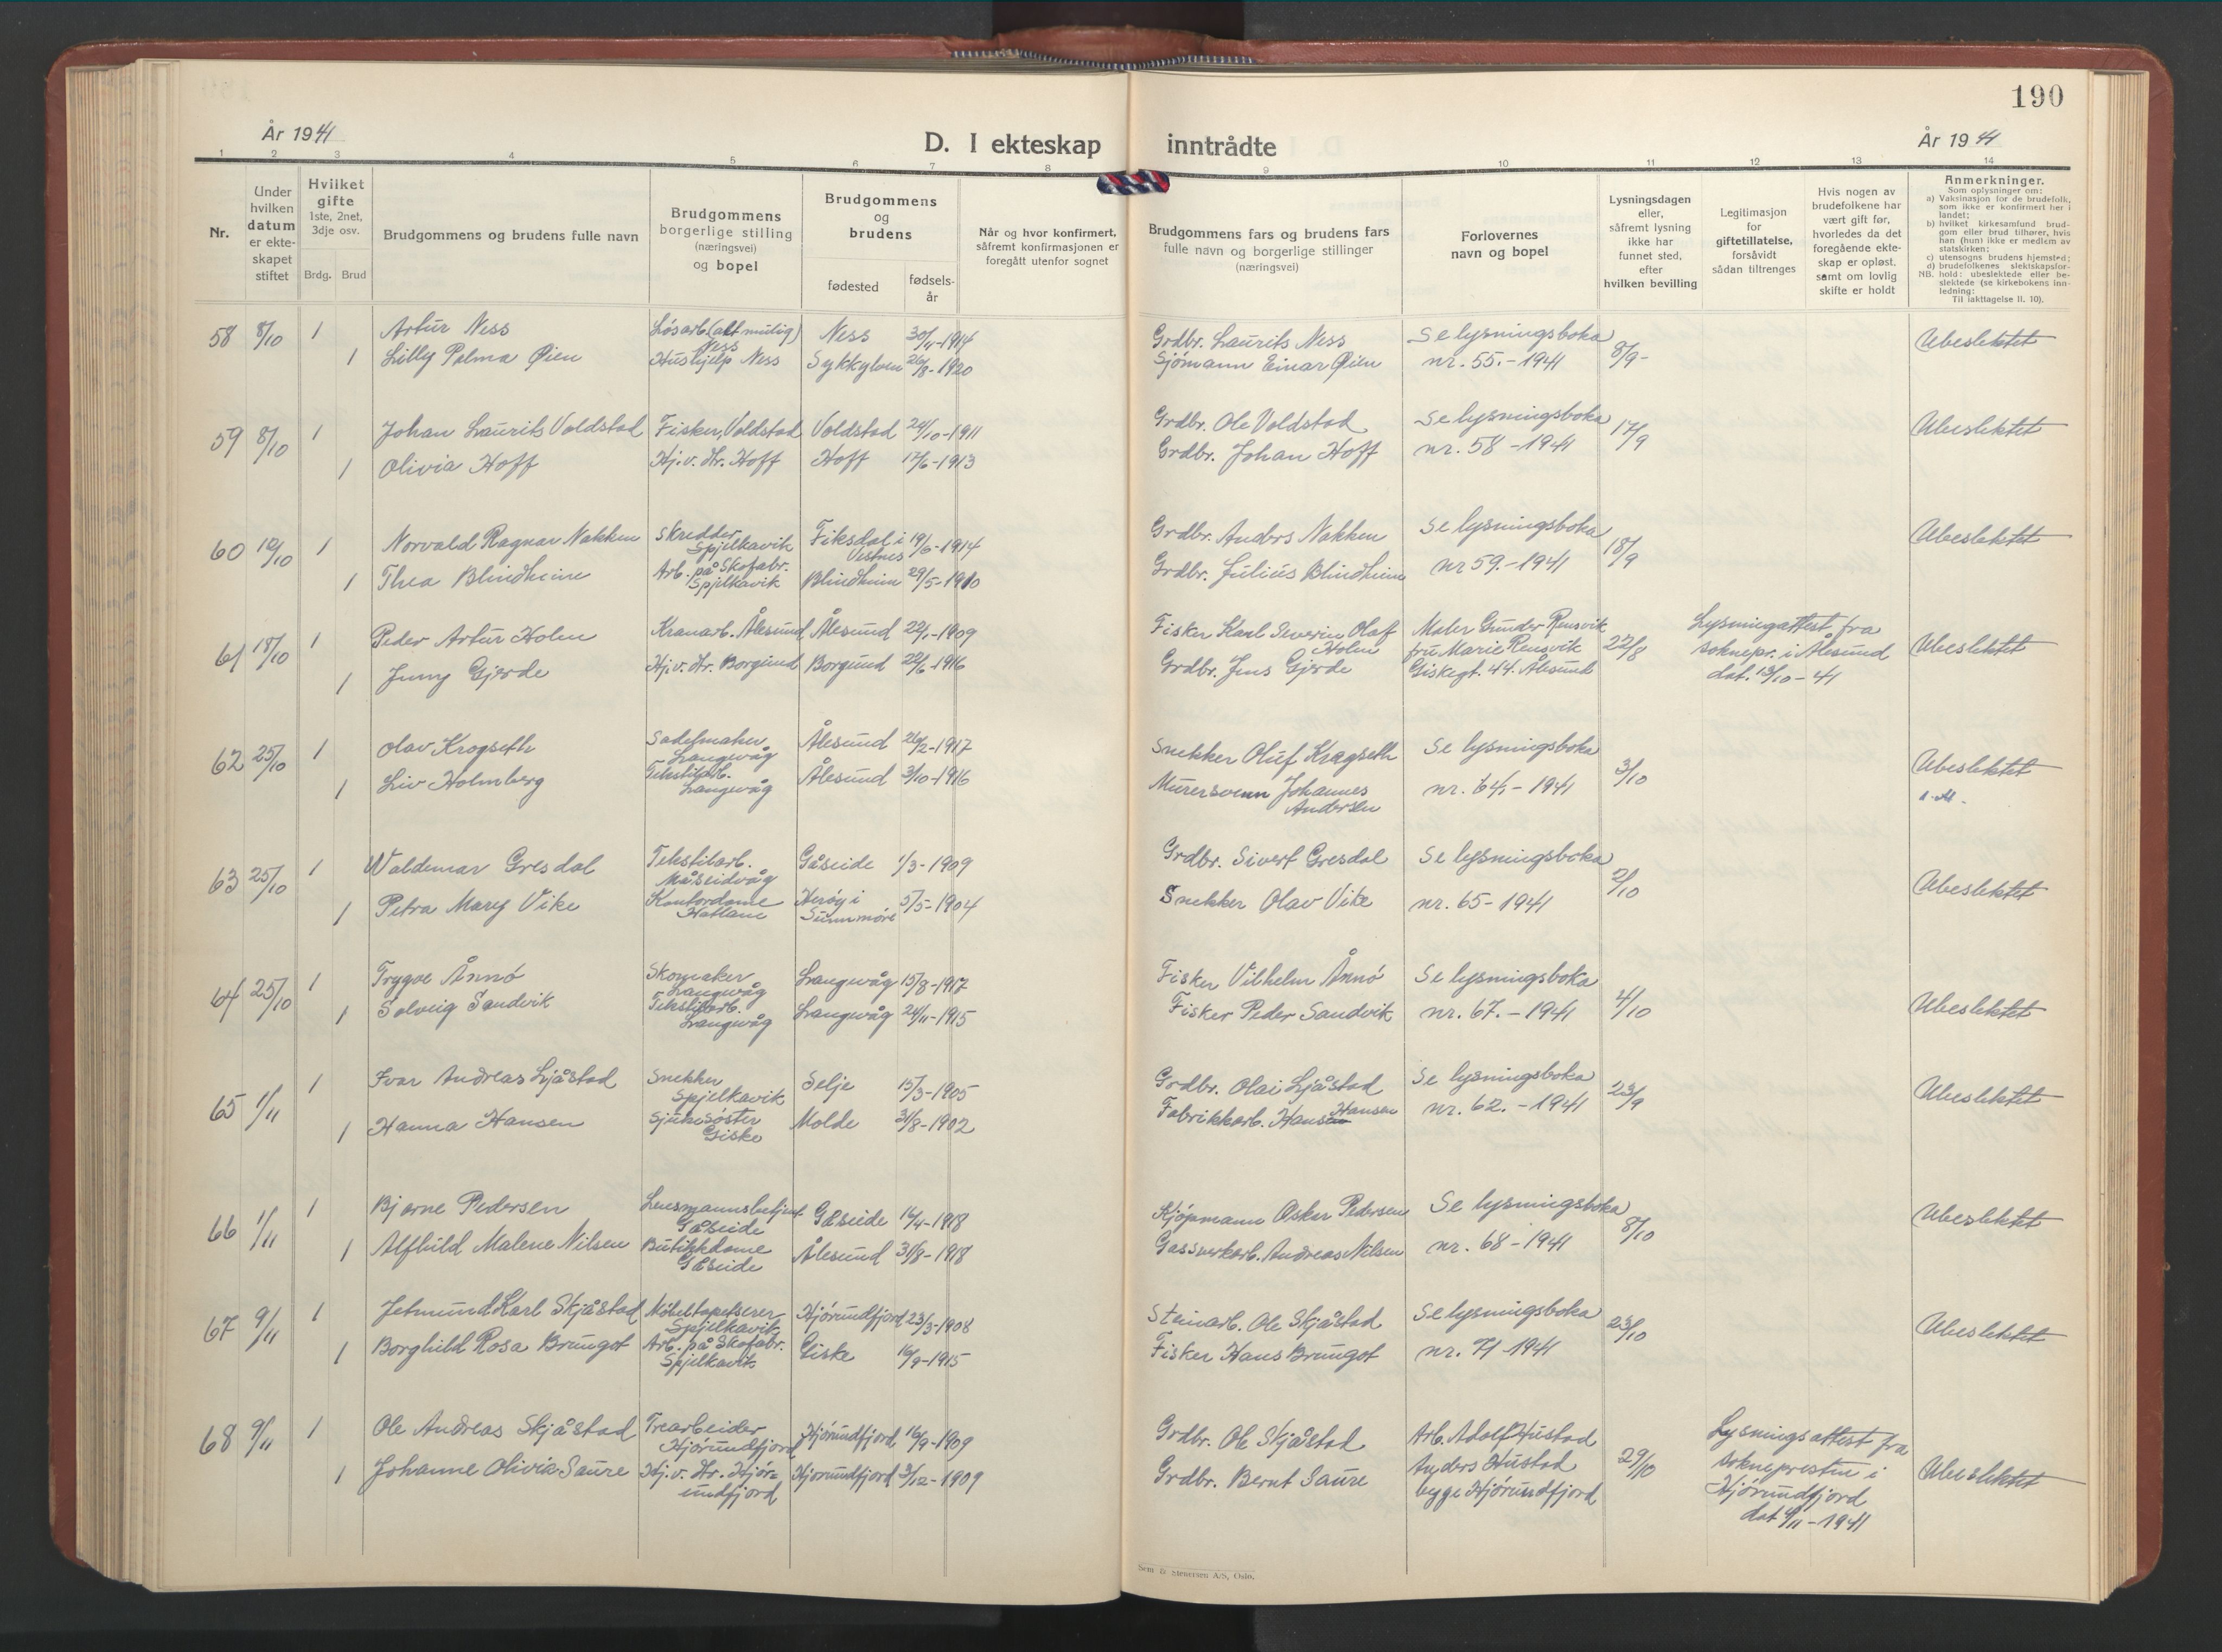 190
År 1941
D. I ekteskap inntrådte
År 1941
1 2 3 4 5 6 7 8 9 10 11 12 13 14
Nr.
Under hvilken datum er ekteskapet stiftet
Hvilket gifte 1ste, 2net, 3dje osv.
Brdg. Brud
Brudgommens og brudens fulle navn
Brudgommens borgerlige stilling (næringsvei) og bopel
Brudgommens og brudens
fødested
fødselsår
Når og hvor konfirmert, såfremt konfirmasjonen er foregått utenfor sognet
Brudgommens fars og brudens fars fulle navn og borgerlige stillinger (næringsvei)
Forlovernes navn og bopel
Lysningsdagen eller, såfremt lysning ikke har funnet sted, efter hvilken bevilling
Legitimasjon for giftetillatelse, forsåvidt sådan tiltrenges
Hvis nogen av brudefolkene har vært gift før, hvorledes da det foregående ekteskap er opløst, samt om lovlig skifte er holdt
Anmerkninger.
Som oplysninger om:
a) Vaksinasjon for de brudefolk, som ikke er konfirmert her i landet;
b) hvilket kirkesamfund brudgom eller brud tilhører, hvis han (hun) ikke er medlem av statskirken;
c) utensogns brudens hjemsted;
d) brudefolkenes slektskapsforhold: ubeslektede eller beslektede (se kirkebokens innledning:
NB.
Til iakttagelse II. 10).
58 8/10 1 Artur Ness Løsarb. (alt mulig) Ness Ness 30/11-1914 Grdbr. Laurits Ness Se lysningsboka 8/9- Ubeslektet
1 Lilly Pelma Øien Hushjelp Ness Sykkylven 26/8-1920 Sjømann Einar Øien nr. 55.-1941
59 8/10 1 Johan Laurits Voldstad Fisker, Voldstad Voldstad 24/10-1911 Grdbr. Ole Voldstad Se lysningsboka 17/9 Ubeslektet
1 Olivia Hoff Hj.v. Hr. Hoff Hoff 17/6-1913 Grdbr. Johan Hoff nr. 58-1941
60 10/10 1 Norvald Ragnar Nakken Skredder Spjelkavik Fiksdal i Vestnes 19/6-1914 Grdbr. Anders Nakken Se lysningsboka 18/9 Ubeslektet
1 Thea Blindheim Arb. på Skofabr. Spjelkavik Blindheim 29/5-1910 Grdbr. Julius Blindheim nr 59.-1941
61 18/10 1 Peder Artur Holm Kranarb. Ålesund Ålesund 22/1-1909 Fisker Karl Severin Olaf Holm Maler Gunder Rensvik 22/8 Lysningattest fra Ubeslektet
1 Jenny Gjerde Hj.v. Hr. Borgund Borgund 22/6-1916 Grdbr. Jens Gjerde fru Marie Rensvik soknepr. i Ålesund
Giskegt. 44. Ålesund dat. 13/10-41
62 25/10 1 Olav Krogseth Sadelmaker Langevåg Ålesund 26/2-1917 Snekker Oluf Krogseth Se lysningsboka 3/10 Ubeslektet
1 Liv Holmberg Tekstilarb. Langevåg Ålesund 3/10-1916 Murersvenn Johannes Andersen nr. 64-1941
63 25/10 1 Waldemar Gresdal Tekstilarb. Måseidvåg Gåseide 1/3-1909 Grdbr. Sivert Gresdal Se lysningsboka 2/10 Ubeslektet
1 Petra Mary Vike Kontordame Hatlane Herøy i Sunnmøre 5/5-1904 Snekker Olav Vike nr. 65-1941
64 25/10 1 Trygve Ånnø Skomaker Langevåg Langevåg 15/8-1917 Fisker Vilhelm Ånnø Se lysningsboka 4/10 Ubeslektet
1 Solveig Sandvik Tekstilarb. Langevåg Langevåg 24/11-1915 Fisker Peder Sandvik nr. 67.-1941
65 1/11 1 Ivar Andreas Ljåstad Snekker Spjelkavik Selje 15/3-1905 Grdbr. Olai Ljåstad Se lysningsboka 23/9 Ubeslektet
1 Hanna Hansen Sjukesøster Giske Molde 31/8-1902 Fabrikkarb. Hans Hansen nr. 62.-1941
66 1/11 1 Bjarne Pedersen Lensmannsbetjent Gåseide Gåseide 14/4-1918 Kjøpmann Oskar Pedersen Se lysningsboka 8/10 Ubeslektet
1 Alfhild Malene Nilsen Butikkdame Gåseide Ålesund 31/8-1918 Gassverkarb. Andreas Nilsen nr. 68-1941
67 9/11 1 Jetmund Karl Skjåstad Møbeltapetserer Spjelkavik Hjørundfjord 23/3-1908 Steinarb. Ole Skjåstad Se lysningsboka 23/10 Ubeslektet
1 Borghild Rosa Brungot Arb. på Skofabr. Spjelkavik Giske 16/9-1915 Fisker Hans Brungot nr. 71-1941
68 9/11 1 Ole Andreas Skjåstad Trearbeider Hjørundfjord Hjørundfjord 16/9-1909 Grdbr. Ole Skjåstad Arb. Adolf Hustad 29/10 Lysningsattest fra Ubeslektet
1 Johanne Olivia Saure Hj.v. Hr. Hjørundfjord Hjørundfjord 3/12-1909 Grdbr. Bernt Saure Anders Hustad soknepresten i
begge Hjørundfjord Hjørundfjord
dat 4/11-1941
Sem & Stenersen A/S, Oslo.